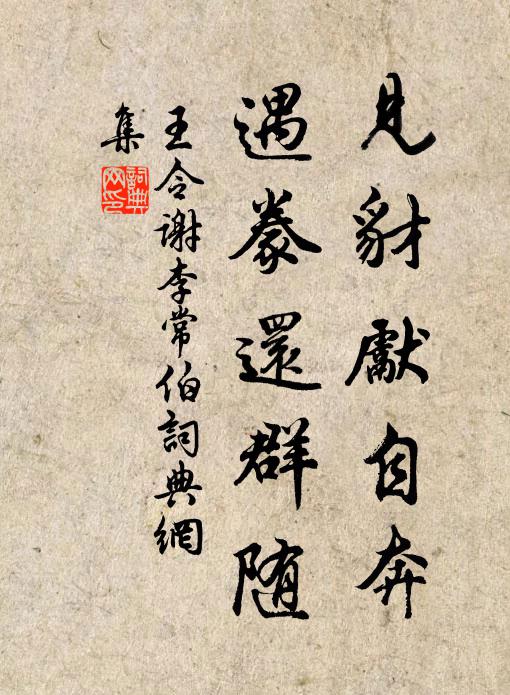 見豺獻自奔
遇豢還群隨
王令謝李常伯詞典網
集
詞典
网印